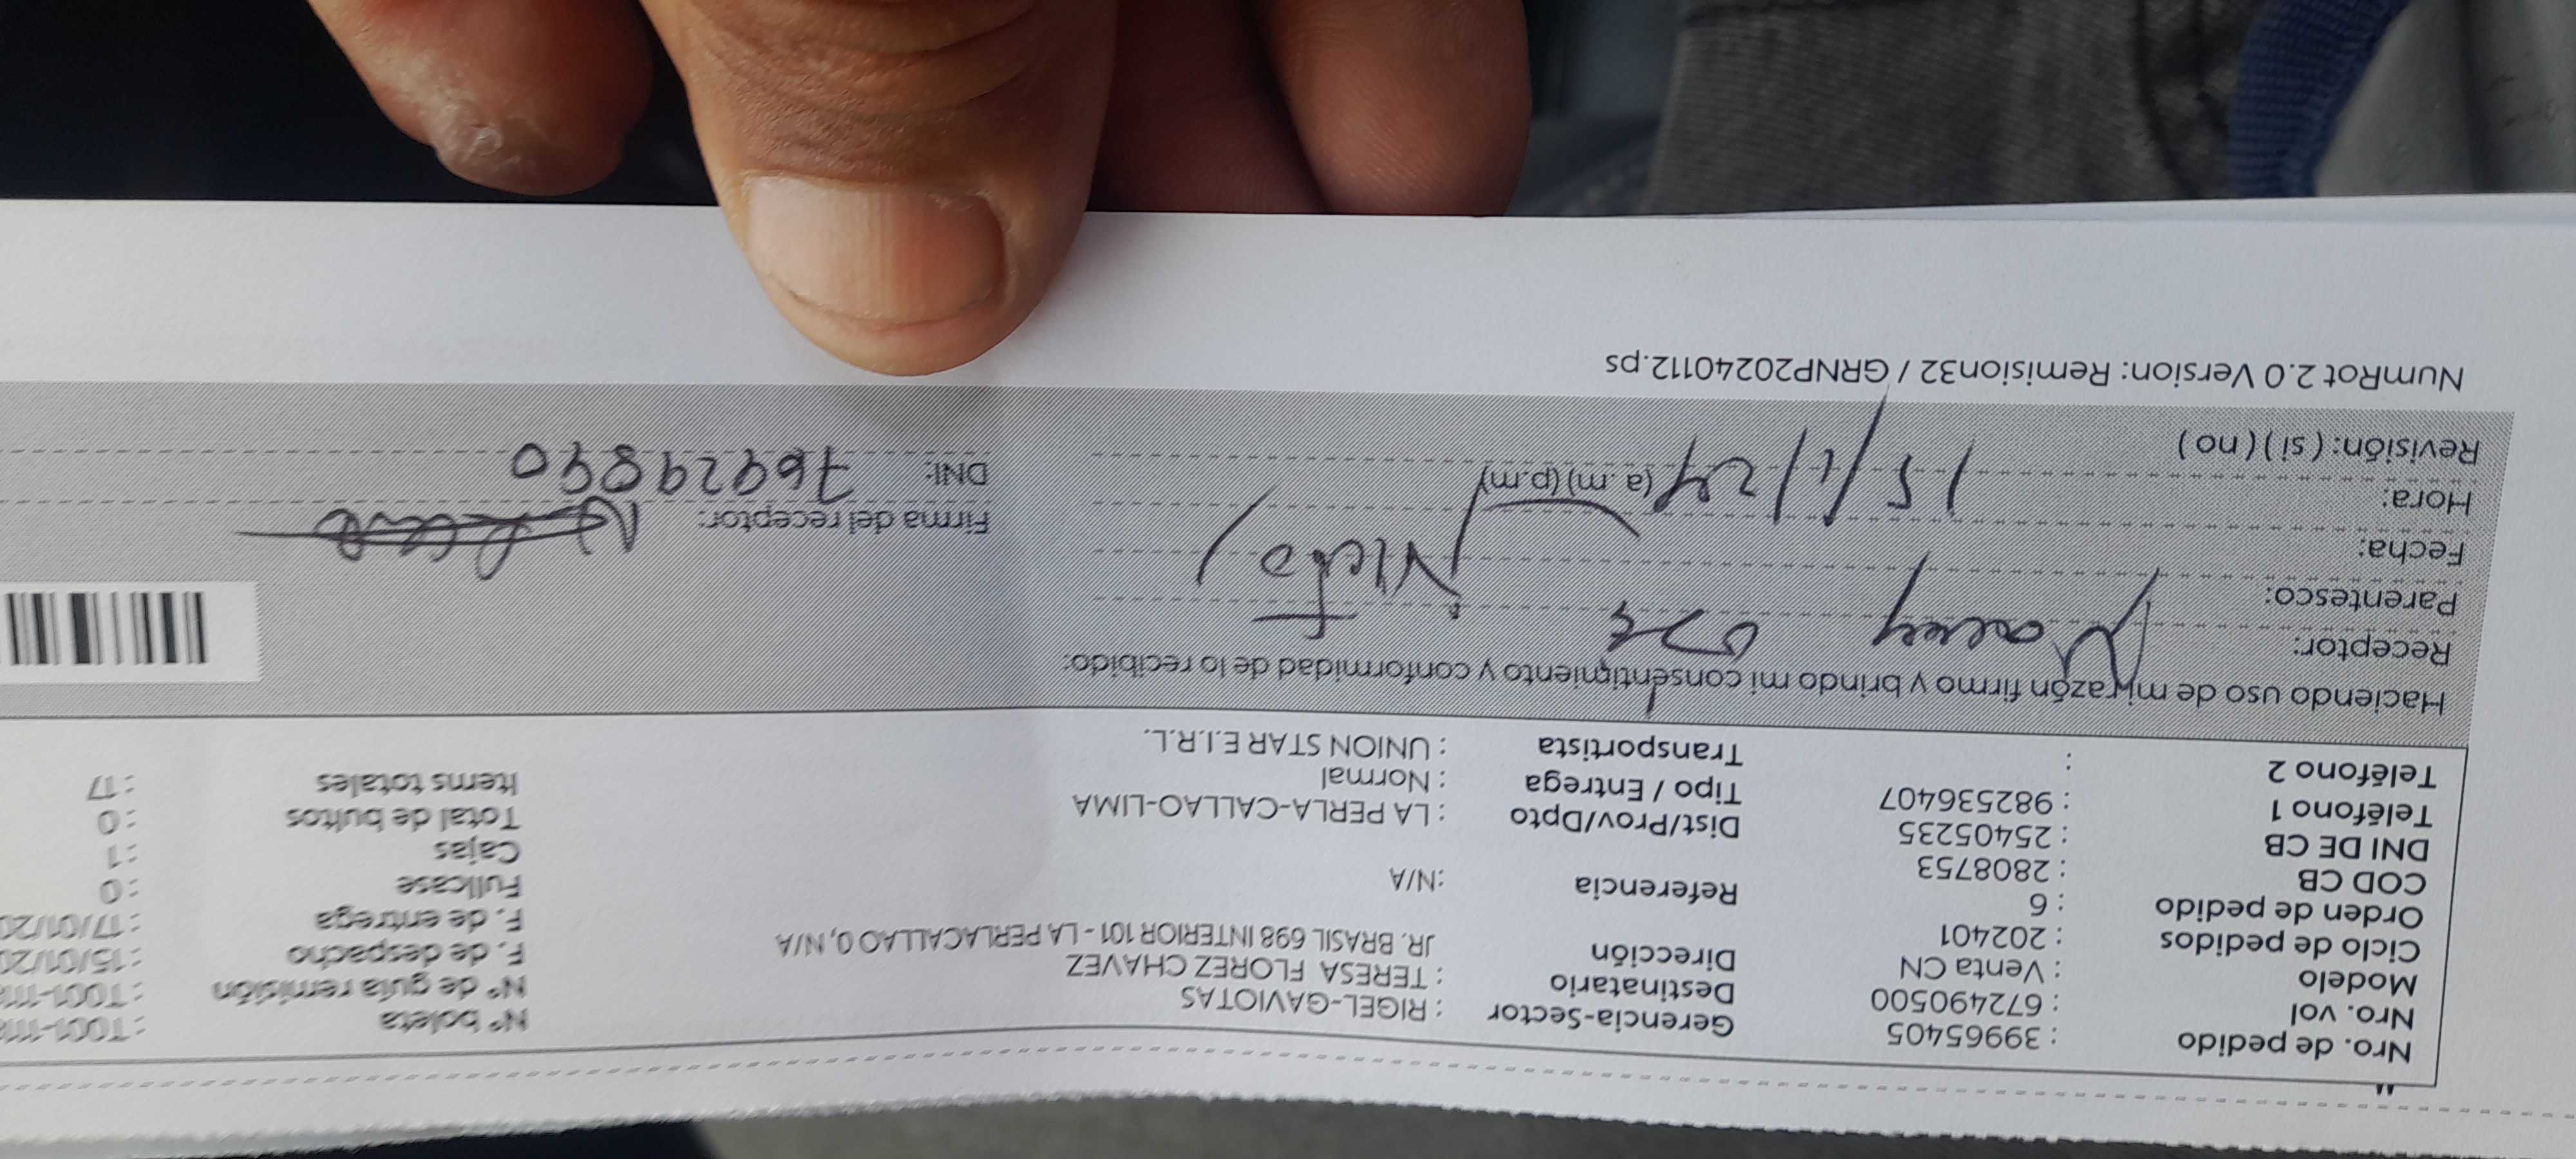 Nro. de pedido : 39965405 Gerencia-Sector : RIGEL-GAVIOTAS Nº boleta
Nro. vol : 672490500 Destinatario : TERESA FLOREZ CHAVEZ Nº de guía remisión
Modelo : Venta CN Dirección JR. BRASIL 698 INTERIOR 101 - LA PERLACALLAO 0, N/A F. de despacho : 15/01/20
Ciclo de pedidos : 202401 F. de entrega : 17/01/20
Orden de pedido : 6 Referencia :N/A Fullcase : 0
COD CB : 2808753 Cajas : 1
DNI DE CB : 25405235 Dist/Prov/Dpto : LA PERLA-CALLAO-LIMA Total de bultos : 0
Teléfono 1 : 982536407 Tipo / Entrega : Normal Items totales : 17
Teléfono 2 : Transportista : UNION STAR E.I.R.L.
Haciendo uso de mi razón firmo y brindo mi consentimiento y conformidad de lo recibido:
Receptor:
Parentesco: Nieto
Fecha: Firma del receptor:
Hora: 15/1/24 (a. m) (p.m) DNI: 76929840
Revisión: ( si ) ( no )
NumRot 2.0 Version: Remision32 / GRNP20240112.ps